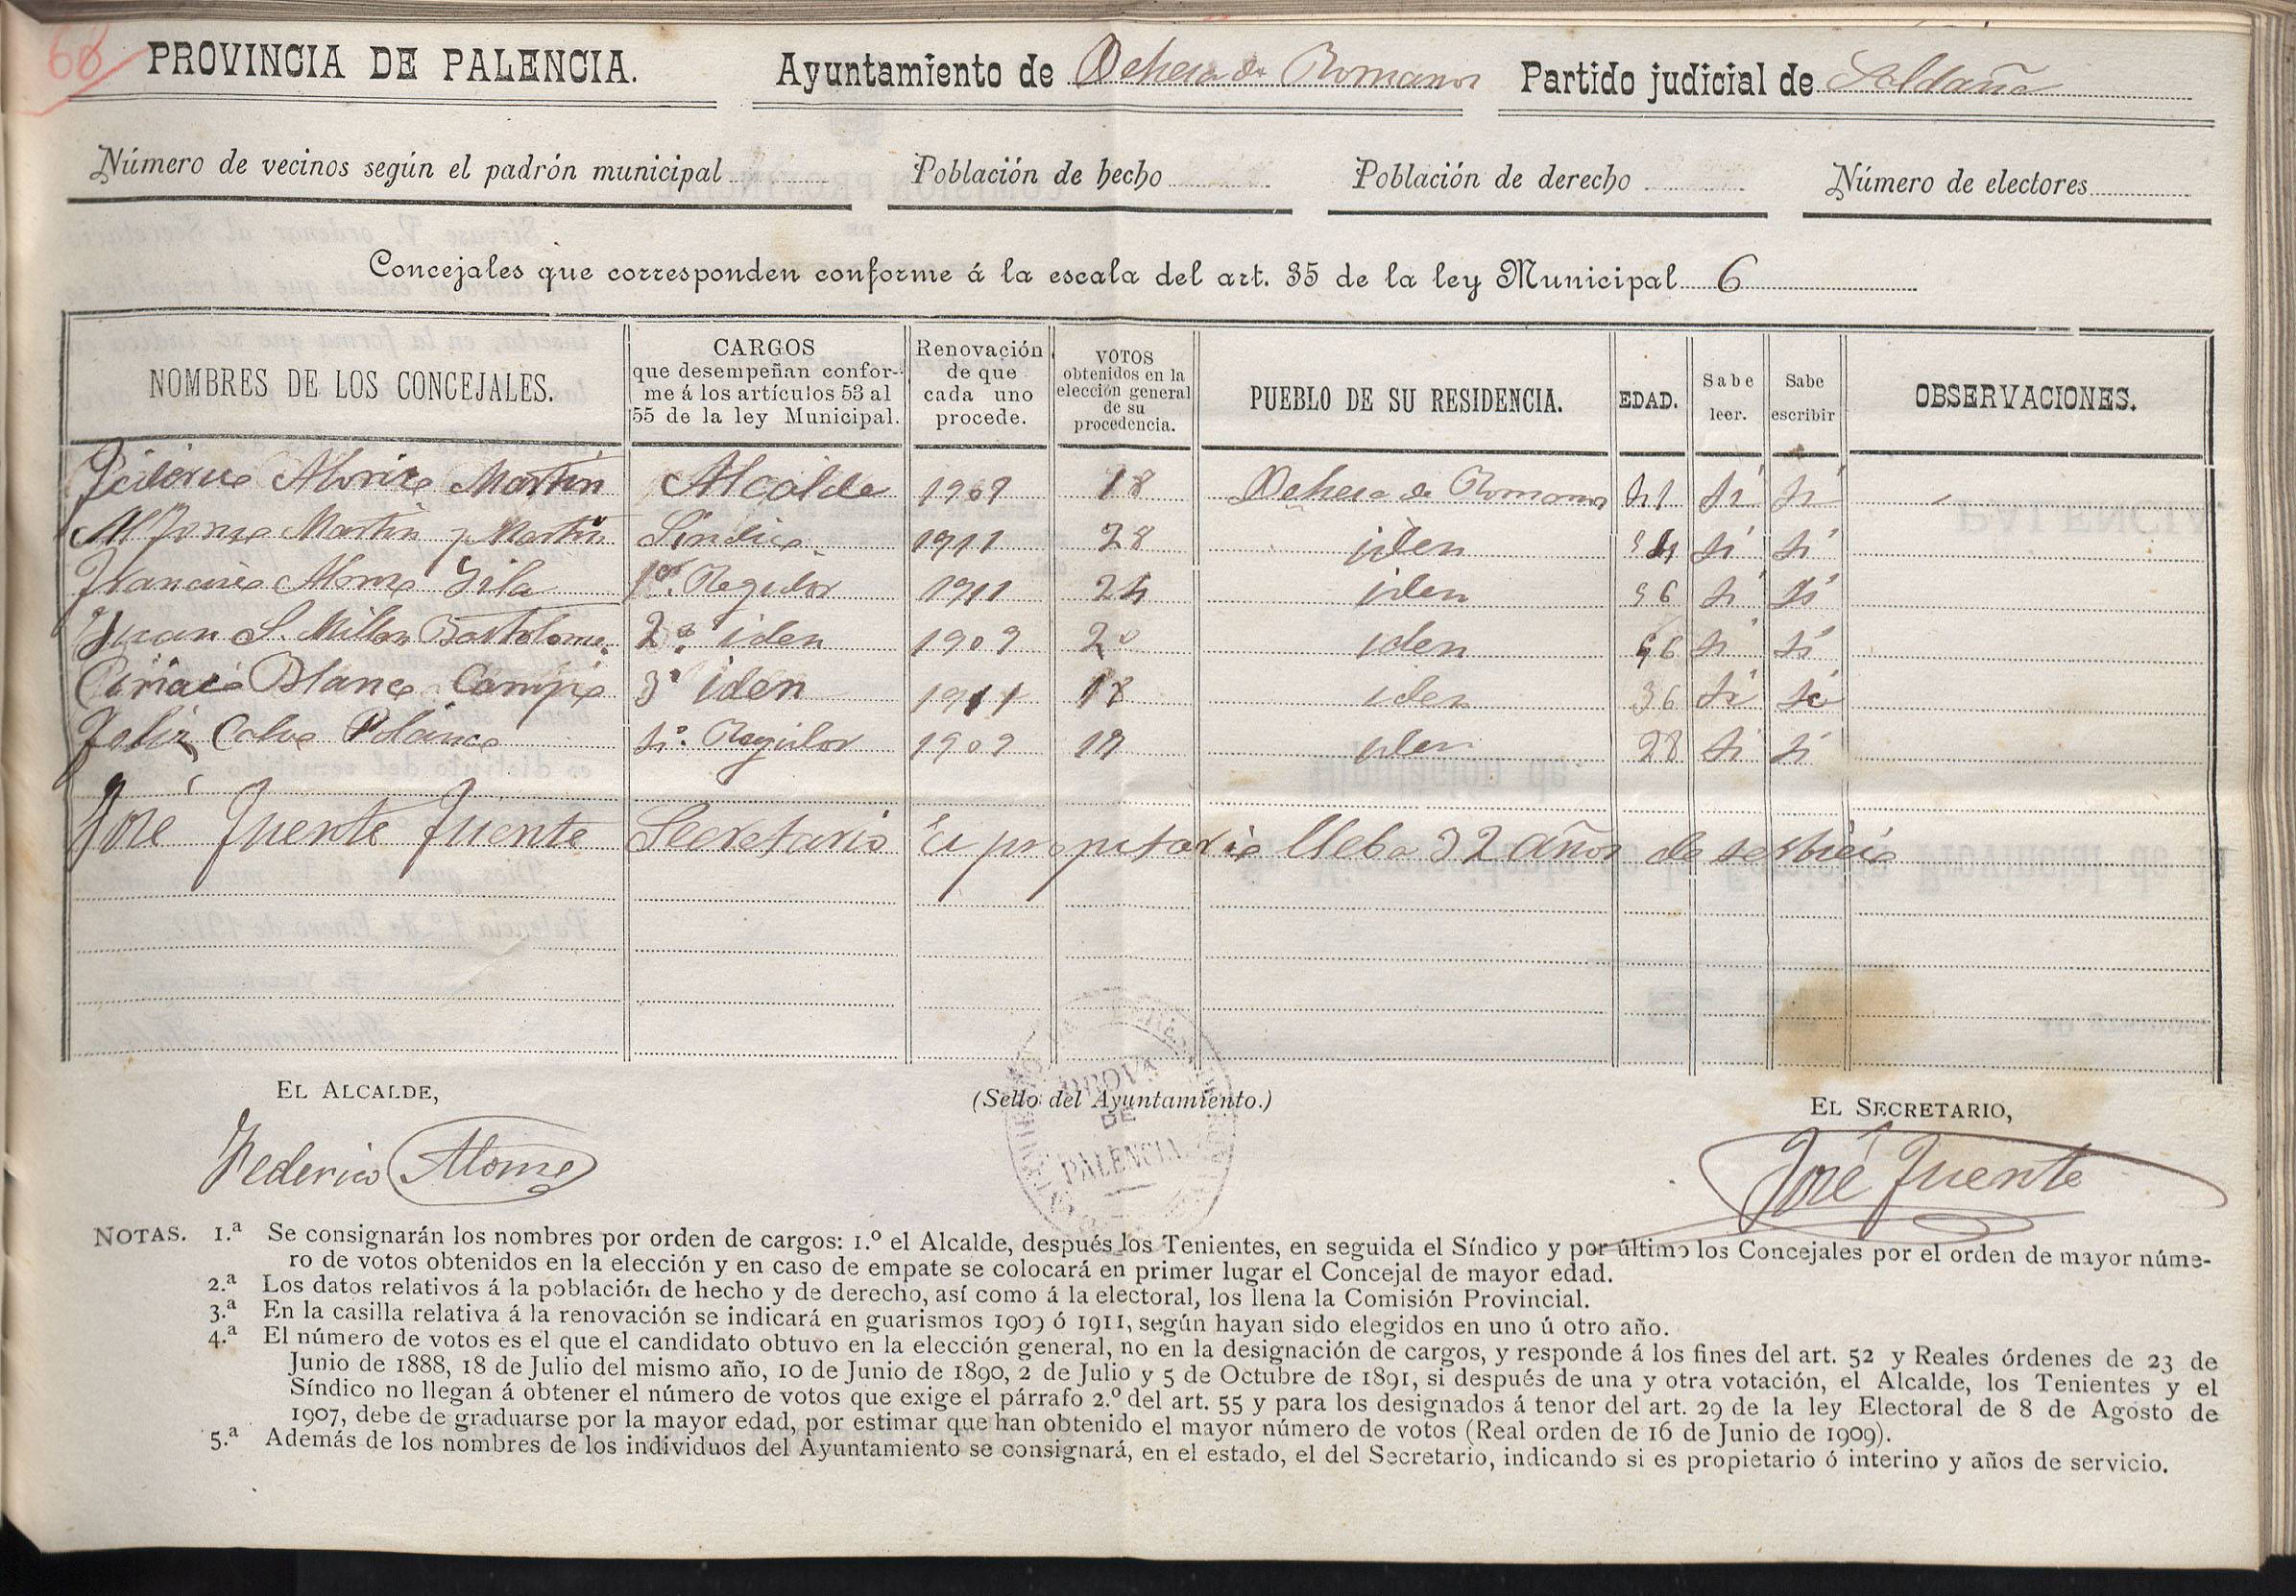 68
PROVINCIA DE PALENCIA. Ayuntamiento de Dehesa de Romanos Partido judicial de Saldaña
Número de vecinos según el padrón municipal Población de hecho Población de derecho Número de electores
Concejales que corresponden conforme á la escala del art. 35 de la ley Municipal 6
NOMBRES DE LOS CONCEJALES. CARGOS que desempeñan confor-me á los artículos 53 al 55 de la ley Municipal. Renovación de que cada uno procede. VOTOS obtenidos en la elección general de su procedencia. PUEBLO DE SU RESIDENCIA. EDAD. Sabe leer. Sabe escribir OBSERVACIONES.
Martin Alcalde 1909 18 Dehesa de Romanos 41 si si
Alfonso Martin y Martin Sindico 1911 28 iden si si
Francisco Alonso Gila 1er Regidor 1911 24 iden 56 si si
Juan S. Millan Bartolome 2º iden 1909 20 iden si si
Ciriaco Blanco Campo 3º iden 1911 18 iden 36 si si
Felix Calvo Polanco 4º Regidor 1909 19 iden 28 si si
José Fuente Fuente Secretario es propitario lleba 32 años de serbicio
EL ALCALDE, (Sello del Ayuntamiento.) EL SECRETARIO,
PROVA DE PALENCIA
Federico Alonso José Fuente
NOTAS. 1.ª Se consignarán los nombres por orden de cargos: 1.º el Alcalde, después los Tenientes, en seguida el Síndico y por último los Concejales por el orden de mayor núme-
ro de votos obtenidos en la elección y en caso de empate se colocará en primer lugar el Concejal de mayor edad.
2.ª Los datos relativos á la población de hecho y de derecho, así como á la electoral, los llena la Comisión Provincial.
3.ª En la casilla relativa á la renovación se indicará en guarismos 1909 ó 1911, según hayan sido elegidos en uno ú otro año.
4.ª El número de votos es el que el candidato obtuvo en la elección general, no en la designación de cargos, y responde á los fines del art. 52 y Reales órdenes de 23 de
Junio de 1888, 18 de Julio del mismo año, 10 de Junio de 1890, 2 de Julio y 5 de Octubre de 1891, si después de una y otra votación, el Alcalde, los Tenientes y el
Síndico no llegan á obtener el número de votos que exige el párrafo 2.º del art. 55 y para los designados á tenor del art. 29 de la ley Electoral de 8 de Agosto de
1907, debe de graduarse por la mayor edad, por estimar que han obtenido el mayor número de votos (Real orden de 16 de Junio de 1909).
5.ª Además de los nombres de los individuos del Ayuntamiento se consignará, en el estado, el del Secretario, indicando si es propietario ó interino y años de servicio.